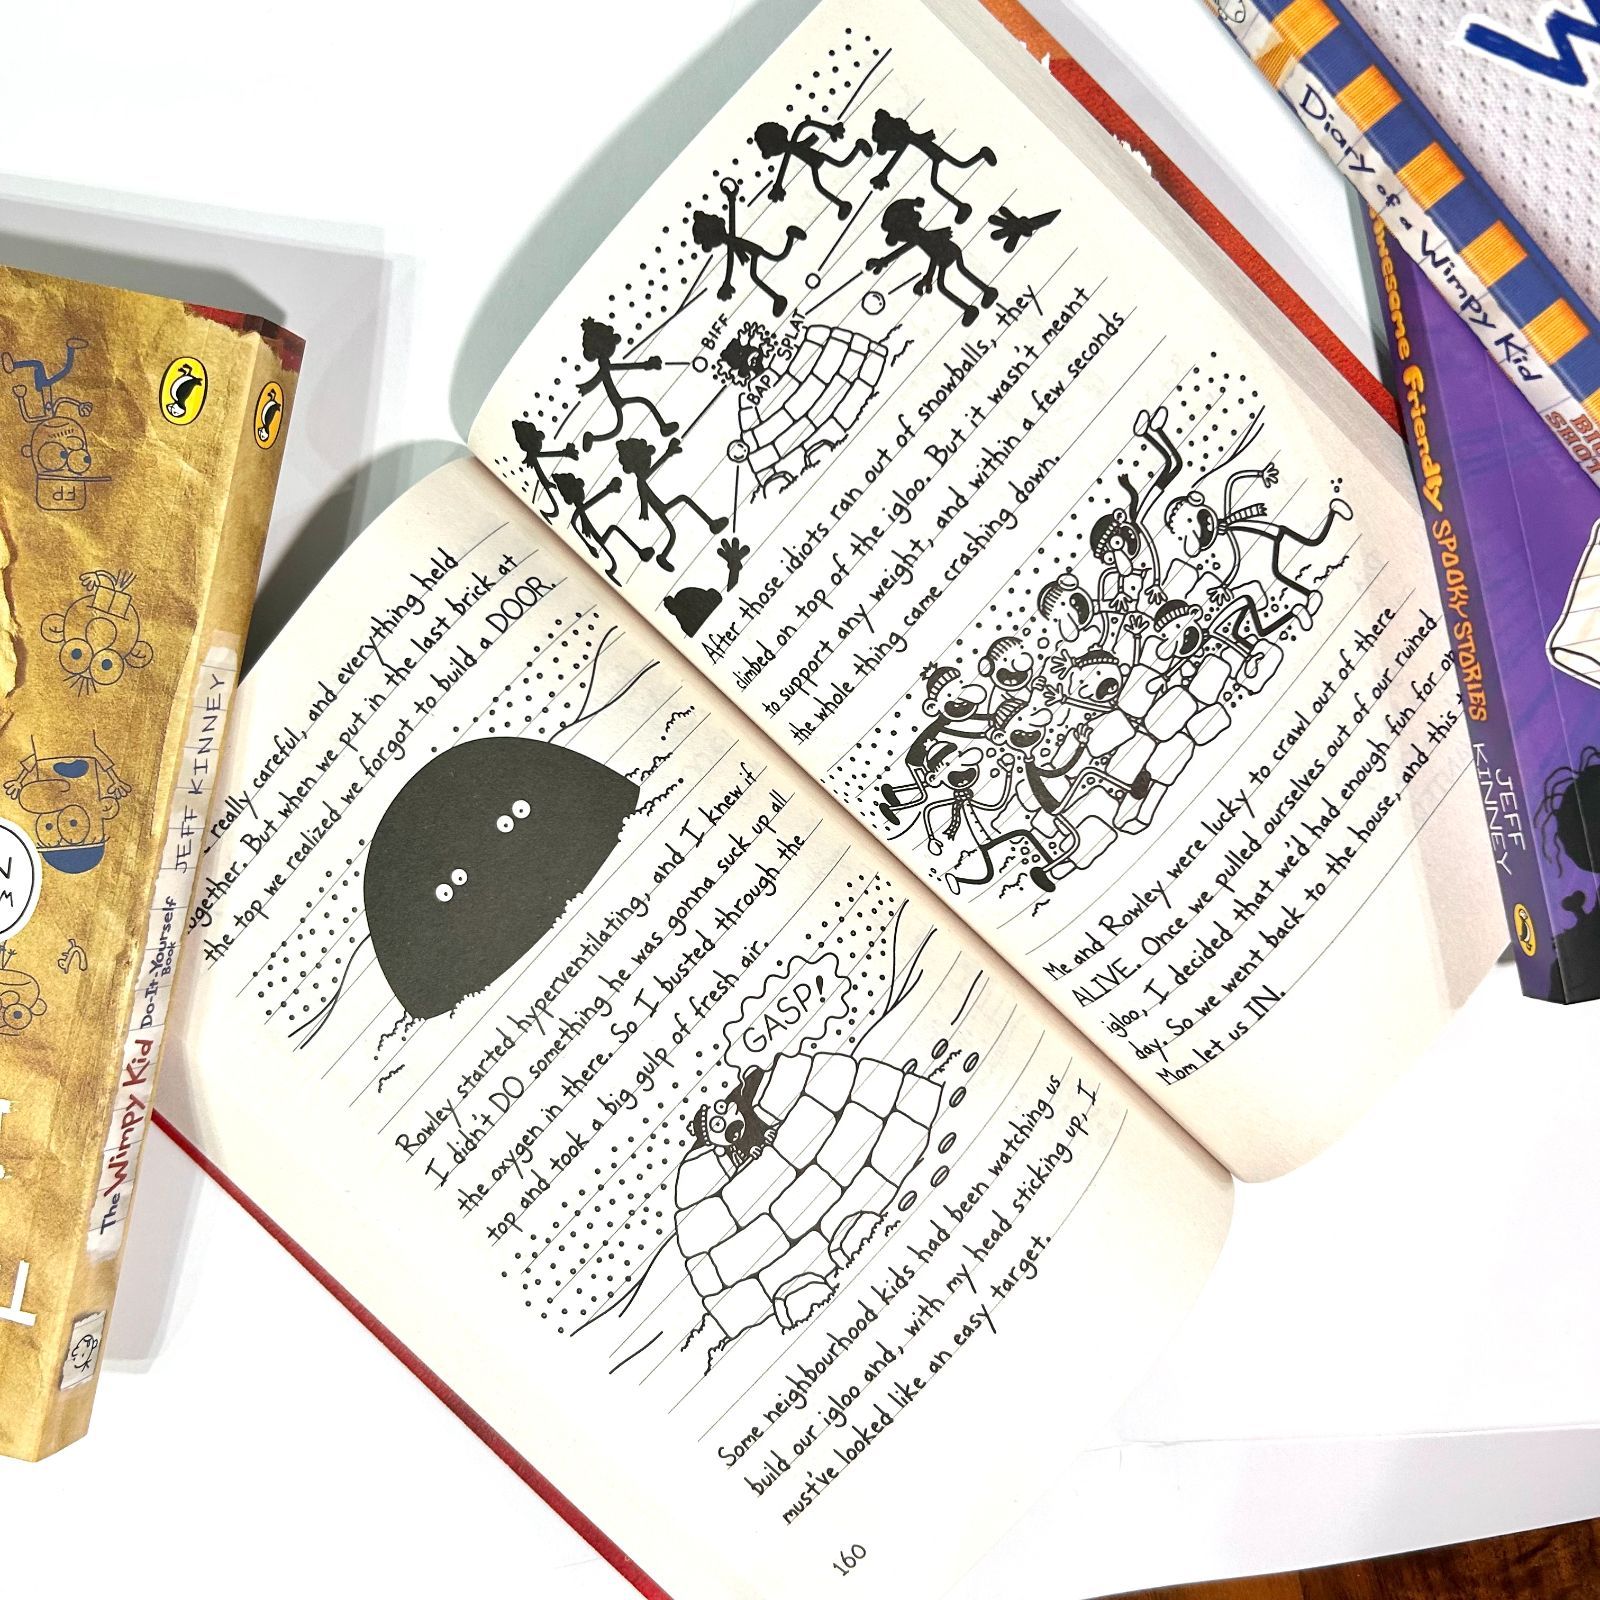 really careful, and everything held
together. But when we put in the last brick at
the top we realized we forgot to build a DOOR.
Rowley started hyperventilating, and I knew if
I didn't DO something he was gonna suck up all
the oxygen in there. So I busted through the
top and took a big gulp of fresh air.
GASP!
Some neighbourhood kids had been watching us
build our igloo and, with my head sticking up, I
must've looked like an easy target.
160
BIFF
SPLAT
BAP
After those idiots ran out of snowballs, they
climbed on top of the igloo. But it wasn't meant
to support any weight, and within a few seconds
the whole thing came crashing down.
Me and Rowley were lucky to crawl out of there
ALIVE. Once we pulled ourselves out of our ruined
igloo, I decided that we'd had enough fun for
day. So we went back to the house, and this
Mom let us IN.
The Wimpy Kid Do-It-Yourself Book JEFF KINNEY
Diary of a Wimpy Kid BIG SHOT
Awesome Friendly SPOOKY STORIES JEFF KINNEY